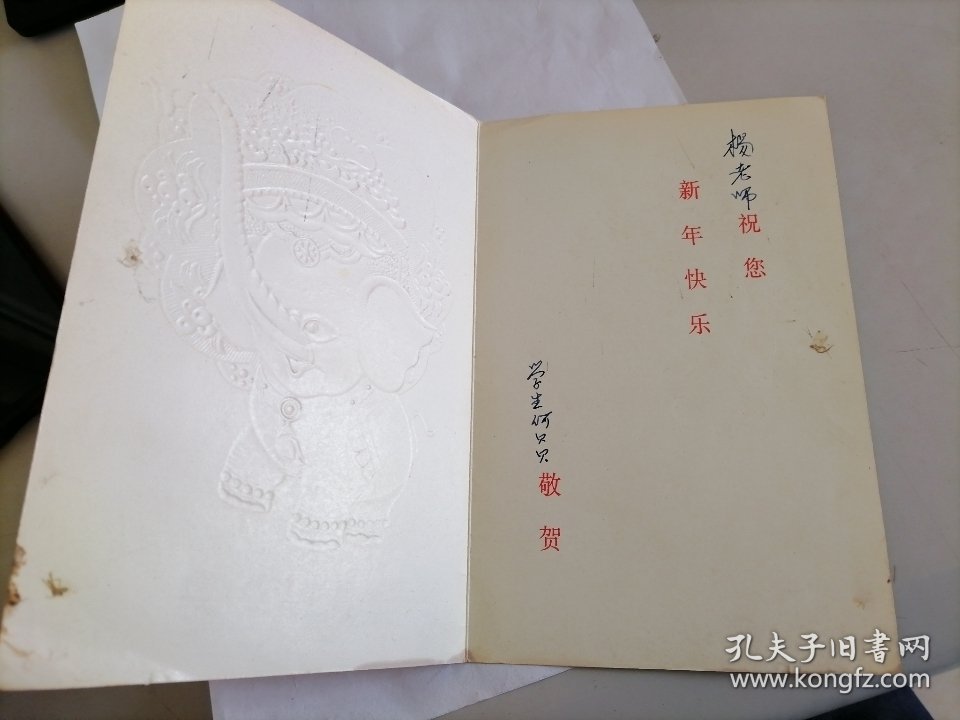 杨老师祝您
新年快乐
学生何贝敬贺
孔夫子旧书网
www.kongfz.com